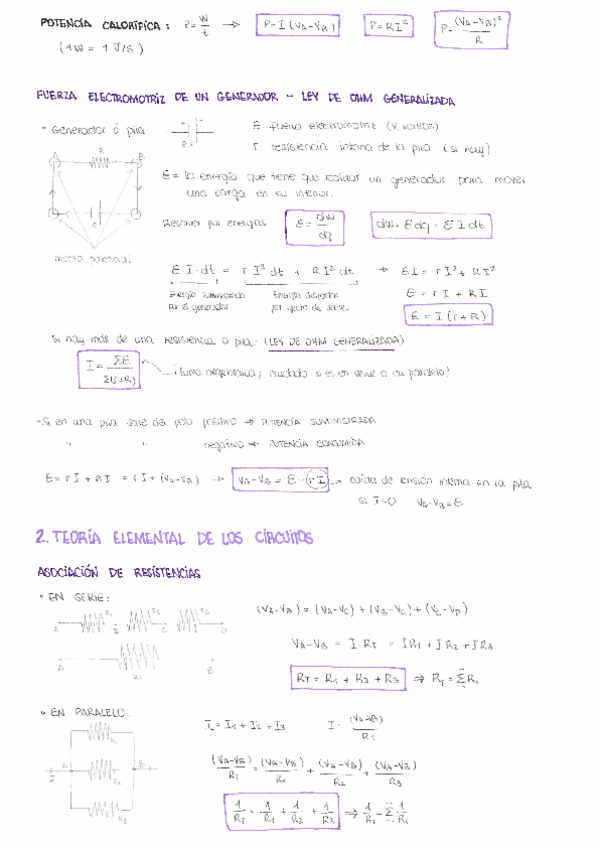 POTENCIA CALORÍFICA: P = W/t → P = I (VA-VB) P = RI² P = (VA-VB)²/R
(1W = 1 J/S)
FUERZA ELECTROMOTRIZ DE UN GENERADOR - LEY DE OHM GENERALIZADA
Generador ó pila E: fuerza electromotriz (V voltios)
r: resistencia interna de la pila (si hay)
R
A B
E = la energía que tiene que realizar un generador para mover
una carga en su interior.
Resolver por energías: E = dW/dq dW = E dq = E I dt
mismo potencial
E I · dt = r I² dt + R I² dt → E I = r I² + R I²
Energía suministrada por el generador Energía disipada por efecto de Joule.
E = r I + R I
E = I (r+R)
Si hay más de una resistencia o pila: (LEY DE OHM GENERALIZADA)
I = ΣE / Σ(r+R) ¡Suma algebraica; cuidado si es en serie o en paralelo!
Si en una pila sale del polo positivo → POTENCIA SUMINISTRADA
" " negativo → POTENCIA CONSUMIDA
E = r I + R I = r I + (VA-VB) → VA-VB = E - (r I) → caída de tensión interna en la pila
si I~0 VA-VB = E
2. TEORÍA ELEMENTAL DE LOS CIRCUITOS
ASOCIACIÓN DE RESISTENCIAS
EN SERIE:
R1 R2 R3
A B C D
(VA-VB) = (VA-VC) + (VB-VC) + (VC-VD)
VA-VB = I · RT = IR1 + IR2 + IR3
A B
RT
RT = R1 + R2 + R3 ⇒ RT = ΣRi
EN PARALELO:
I = I1 + I2 + I3 I = (VA-VB)/RT
R1
A B
I R2
R3
(VA-VB)/RT = (VA-VB)/R1 + (VA-VB)/R2 + (VA-VB)/R3
1/RT = 1/R1 + 1/R2 + 1/R3 → 1/RT = Σ 1/Ri